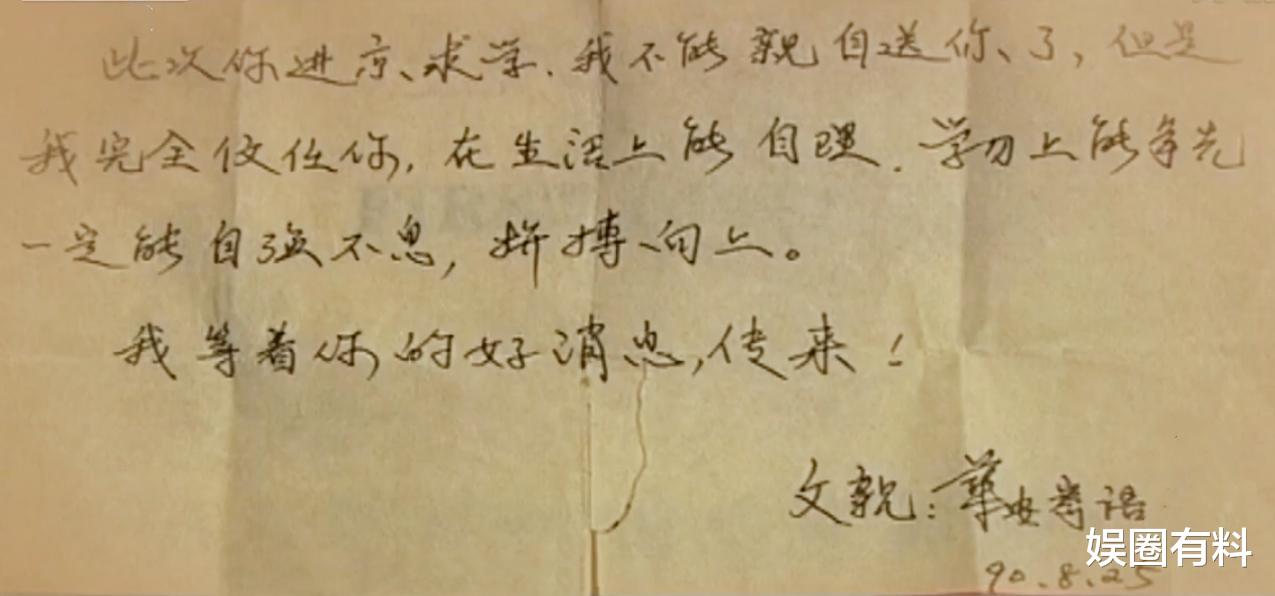 此次你进京、求学、我不能亲自送你、了,但是
我完全伩任你,在生活上能自理、学习上能争先
一定能自强不息,拼搏向上。
我等着你的好消息,传来!
父亲:寄语
娱圈有料
90.8.25